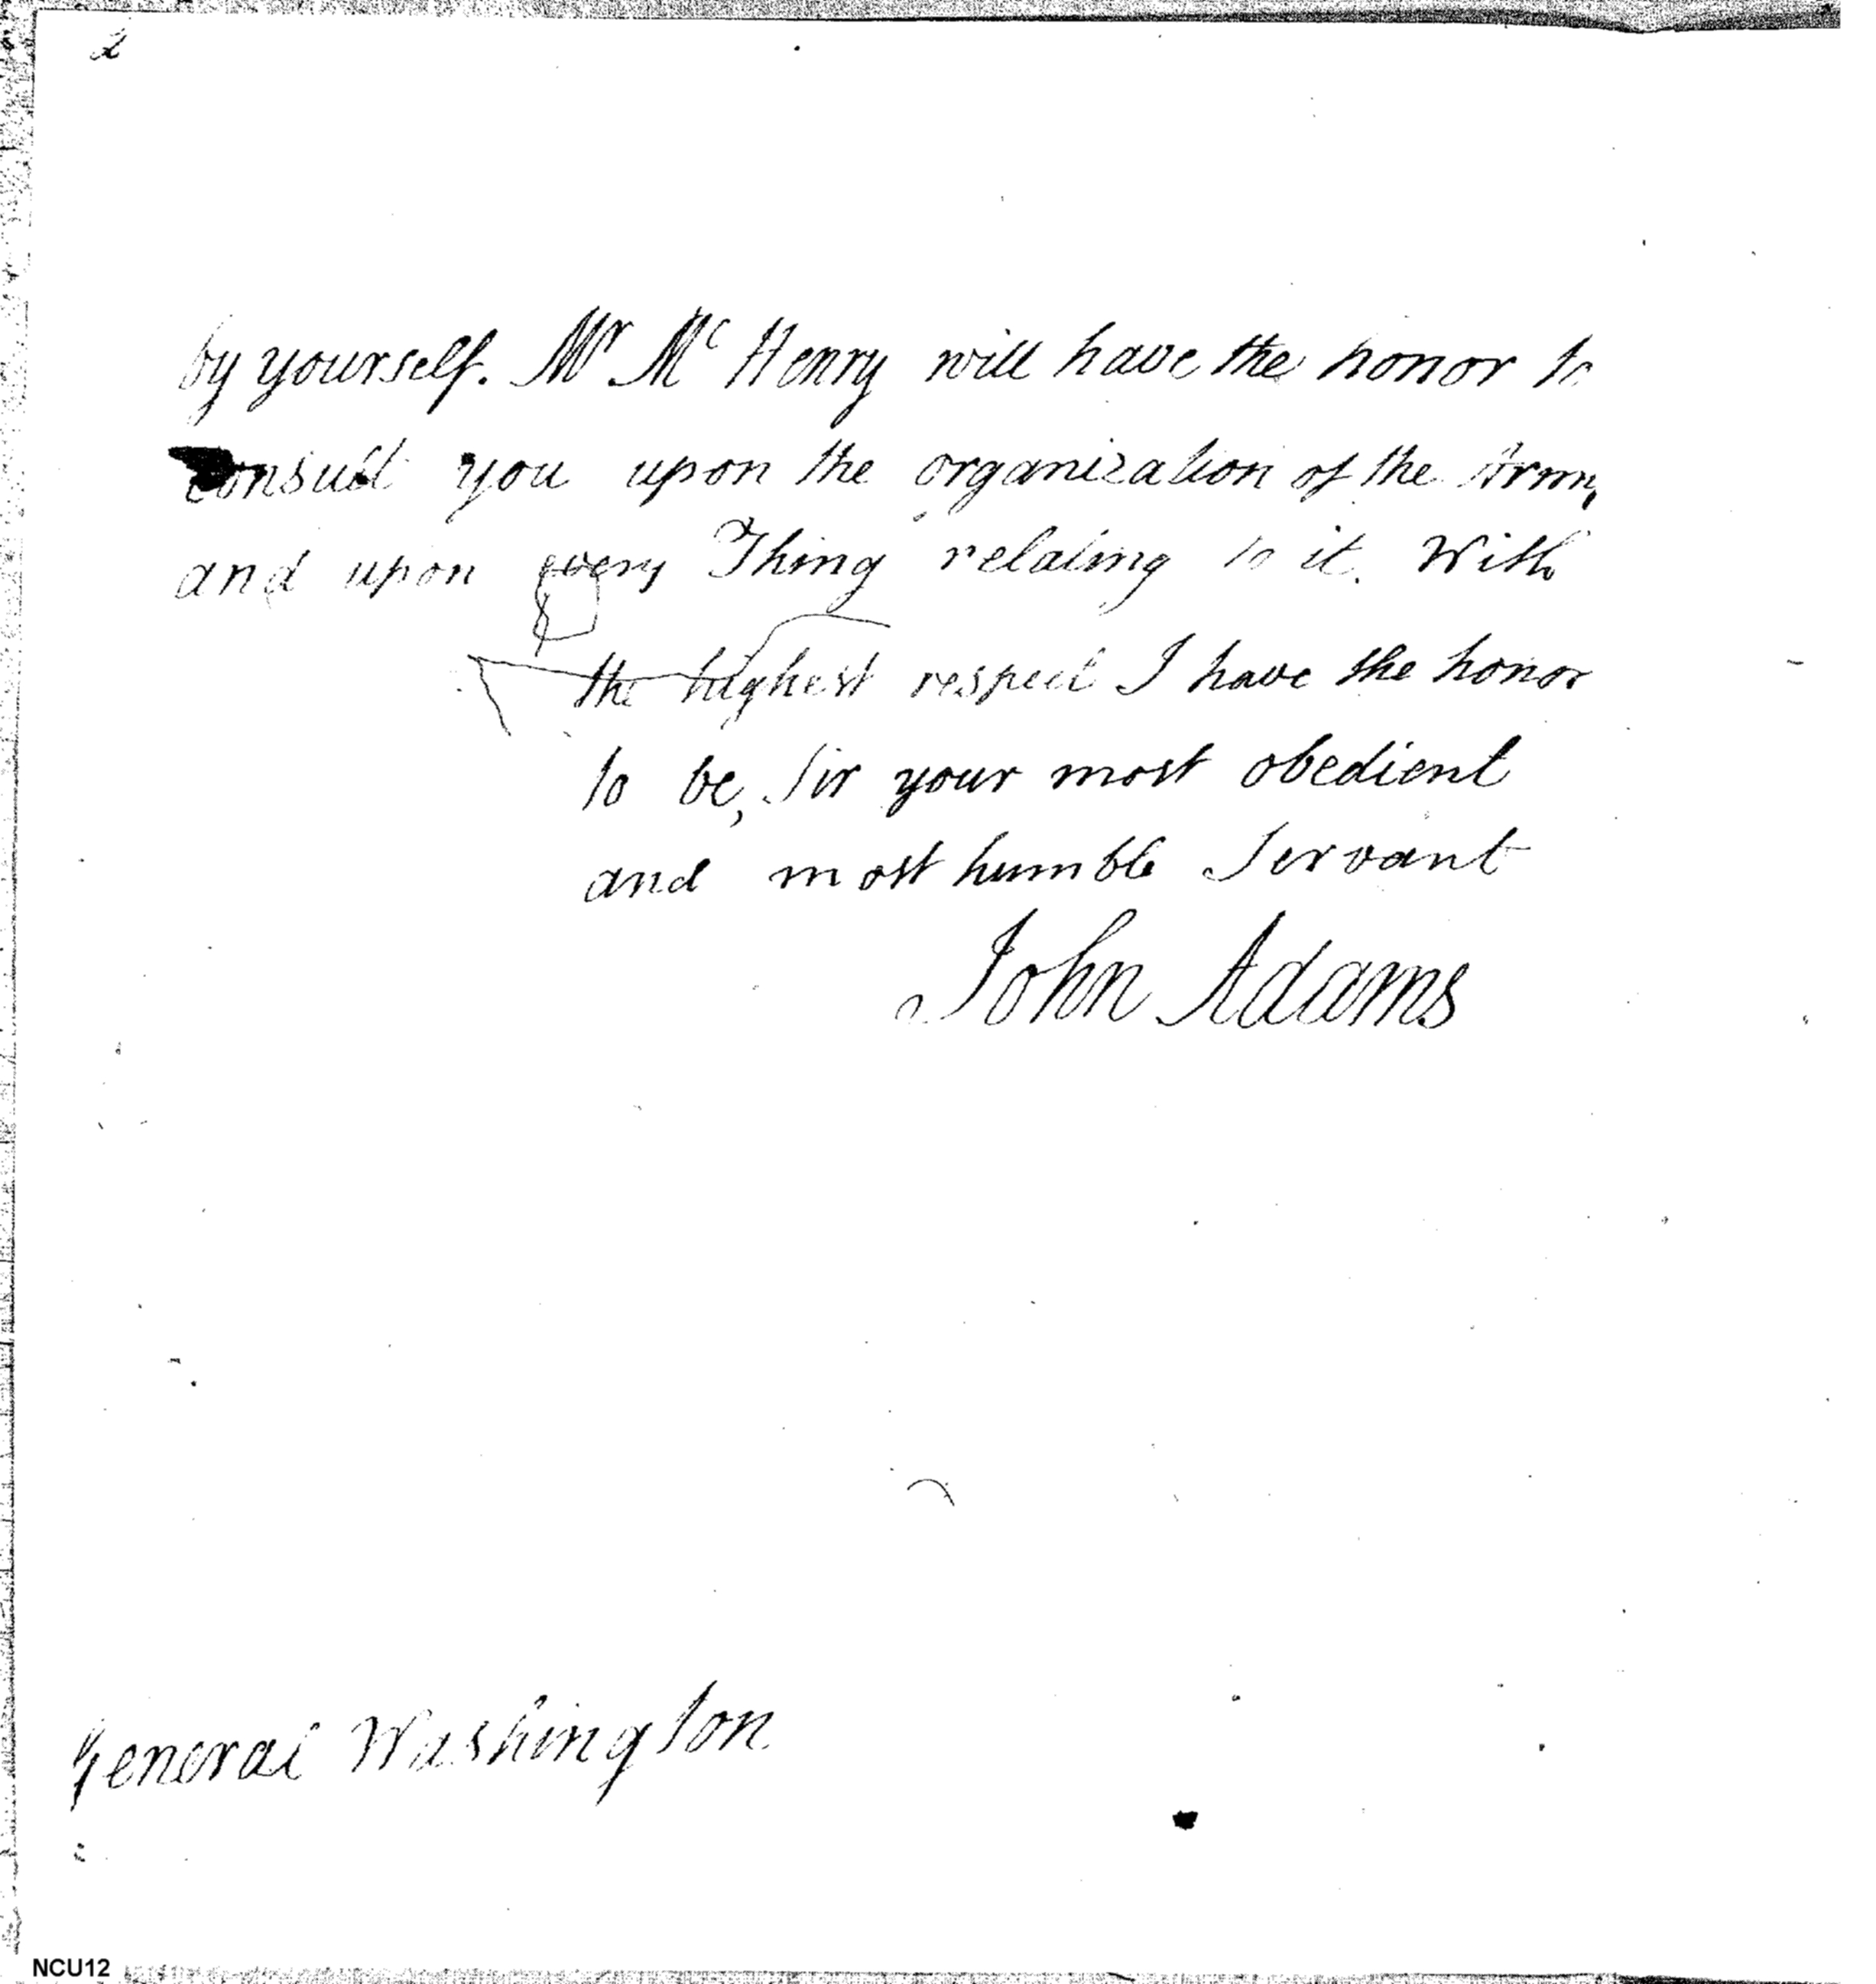 2
by yourself. Mr McHenry will have the honor to
consult you upon the organization of the Army
and upon every Thing relating to it. With
the highest respect I have the honor
to be, Sir your most obedient
and most humble Servant
John Adams
General Washington
NCU12